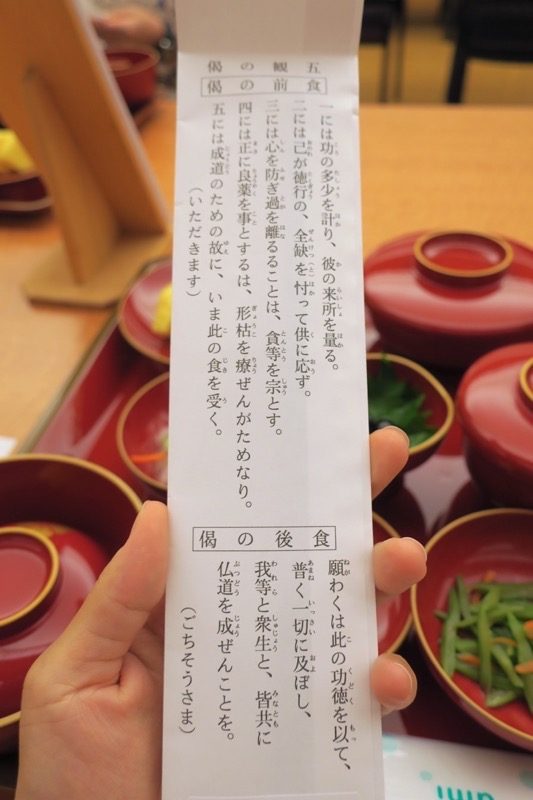 五観の偈
食前の偈
一には功の多少を計り、彼の来所を量る。
二には己が徳行の、全缺を忖って供に応ず。
三には心を防ぎ過を離るることは、貪等を宗とす。
四には正に良薬を事とするは、形枯を療ぜんがためなり。
五には成道のための故に、いま此の食を受く。
(いただきます)
食後の偈
願わくは此の功徳を以て、
普く一切に及ぼし、
我等と衆生と、皆共に
仏道を成ぜんことを。
(ごちそうさま)